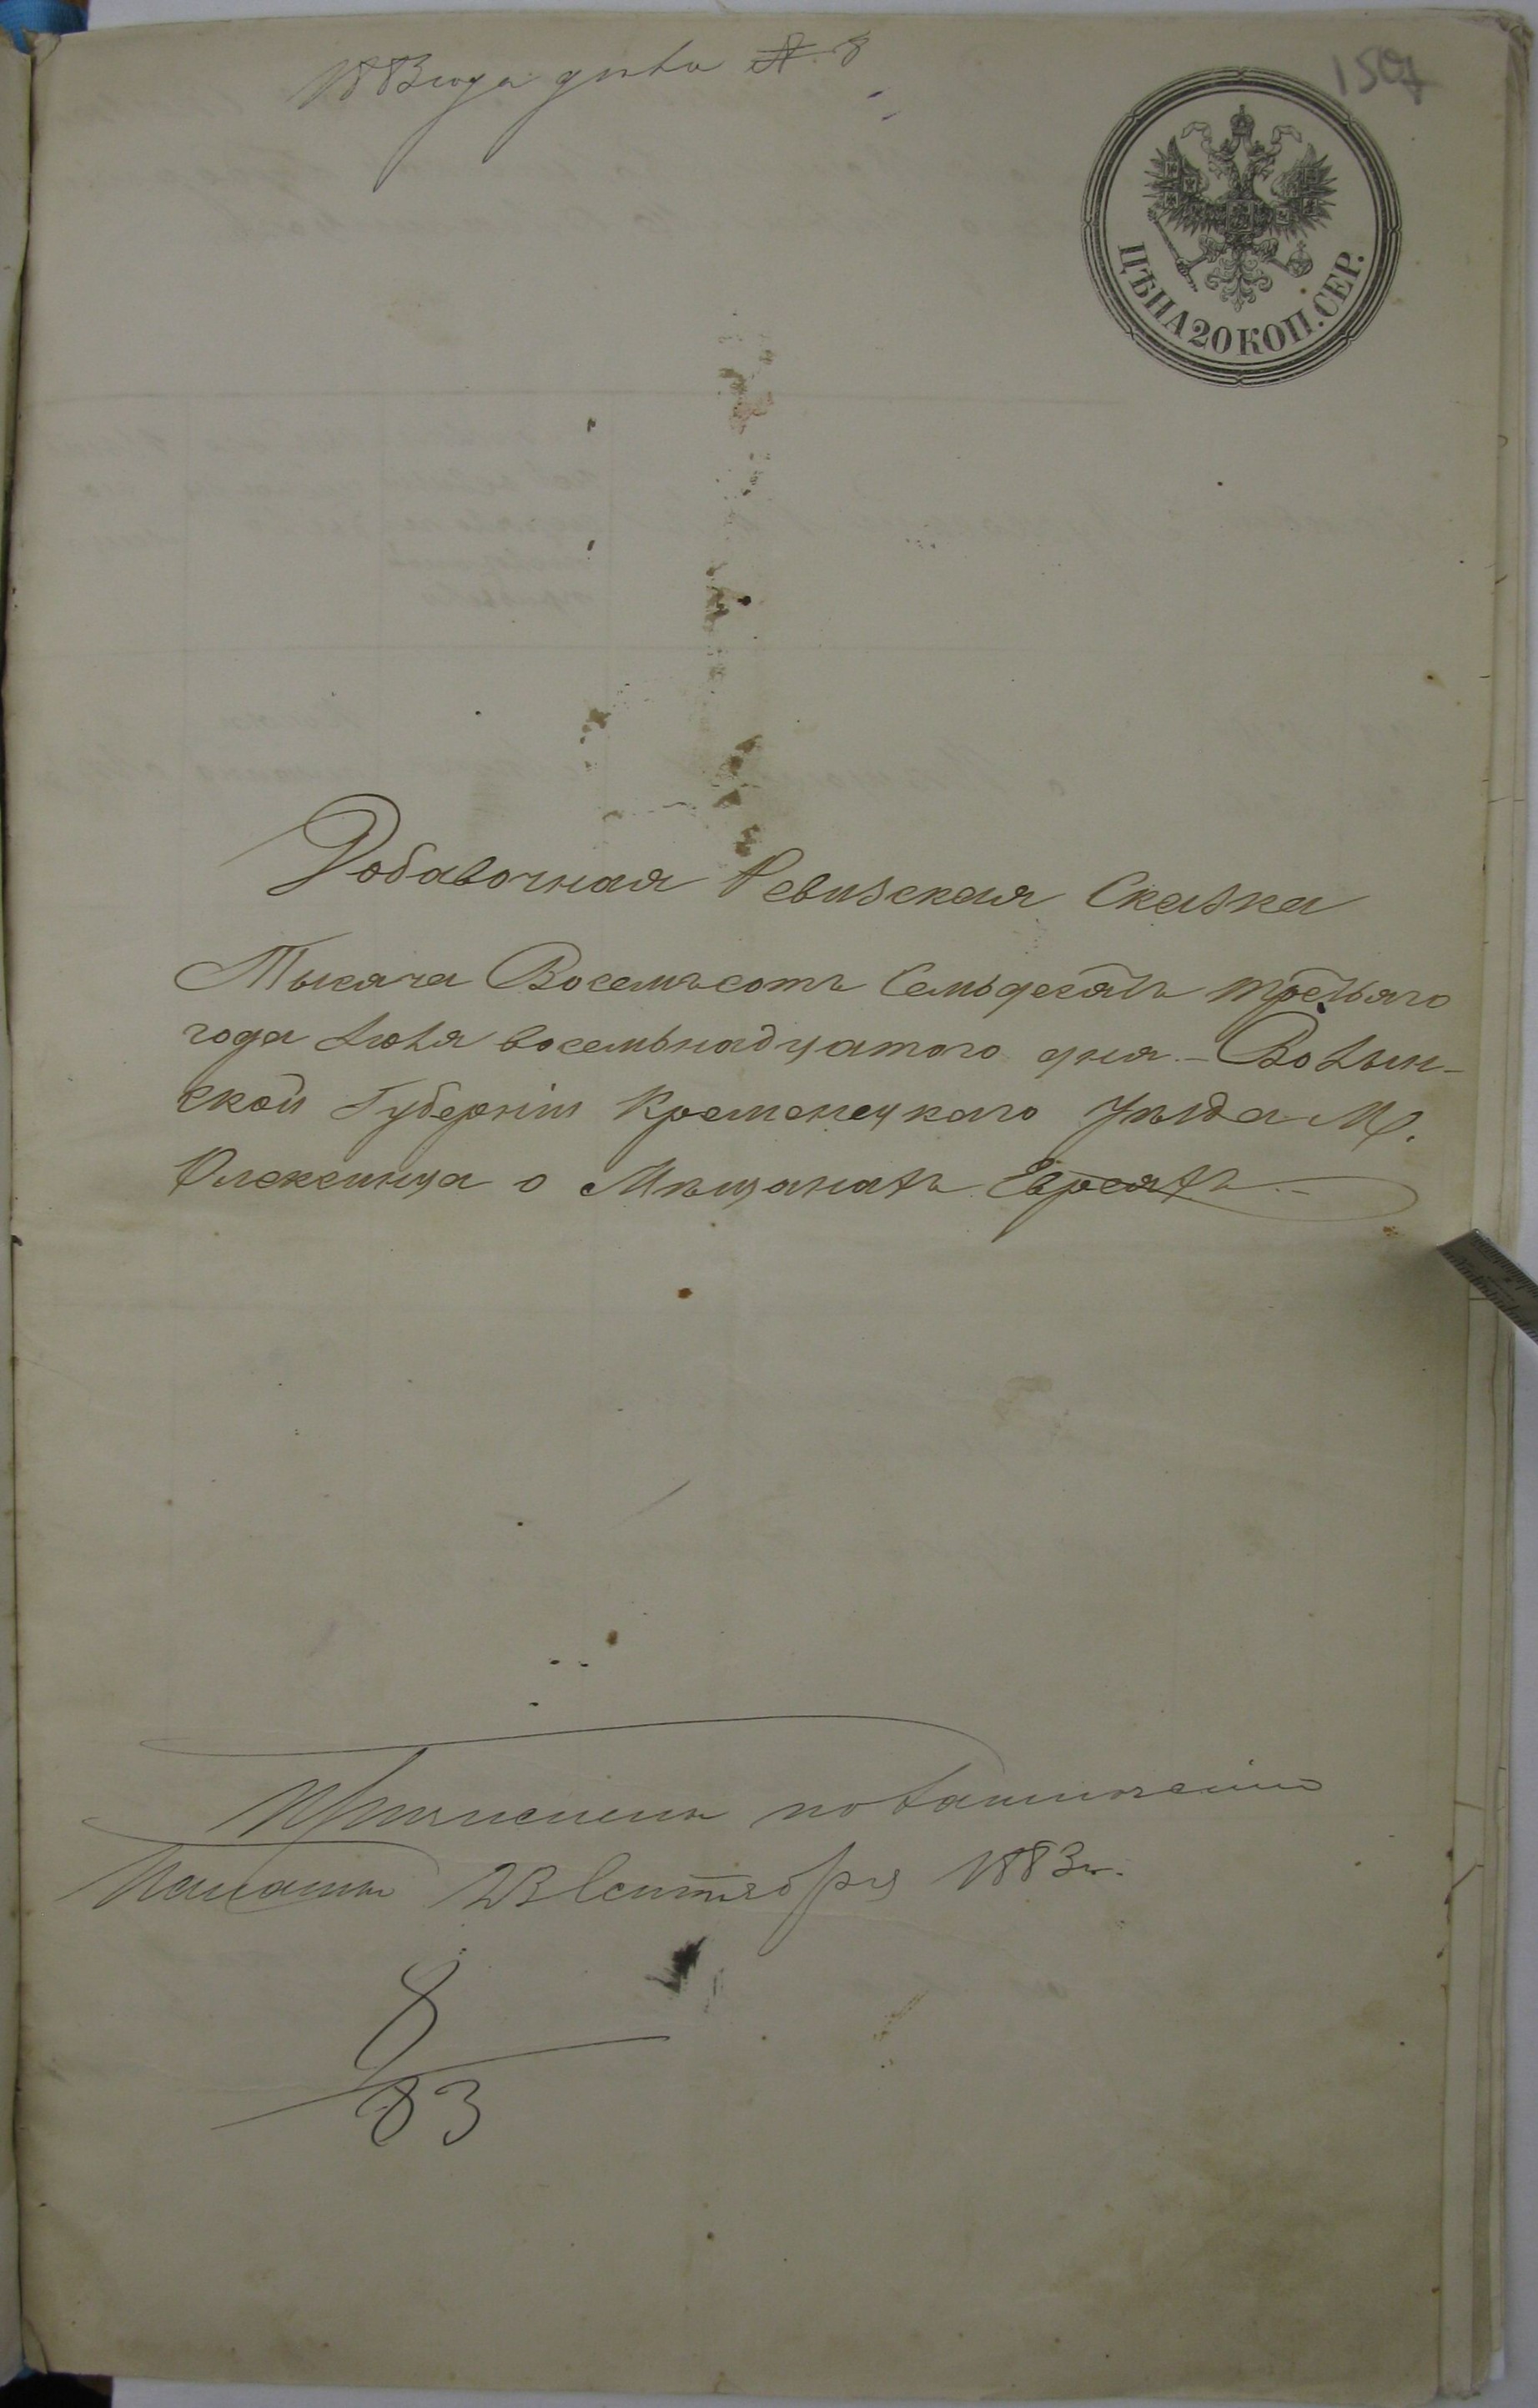 1883 года дѣло № 8
1507
ЦѢНА 20 КОП. СЕР.
Добавочная Ревизская Сказка
Тысяча Восемьсотъ Семьдесятъ третьяго
года Іюля восемьнадцатого дня. – Волын-
ской Губерніи Кременецкаго Уѣзда М.
Олексинца о Мѣщанахъ Евреяхъ. –
Палаты 23 Сентября 1883 г.
8
83